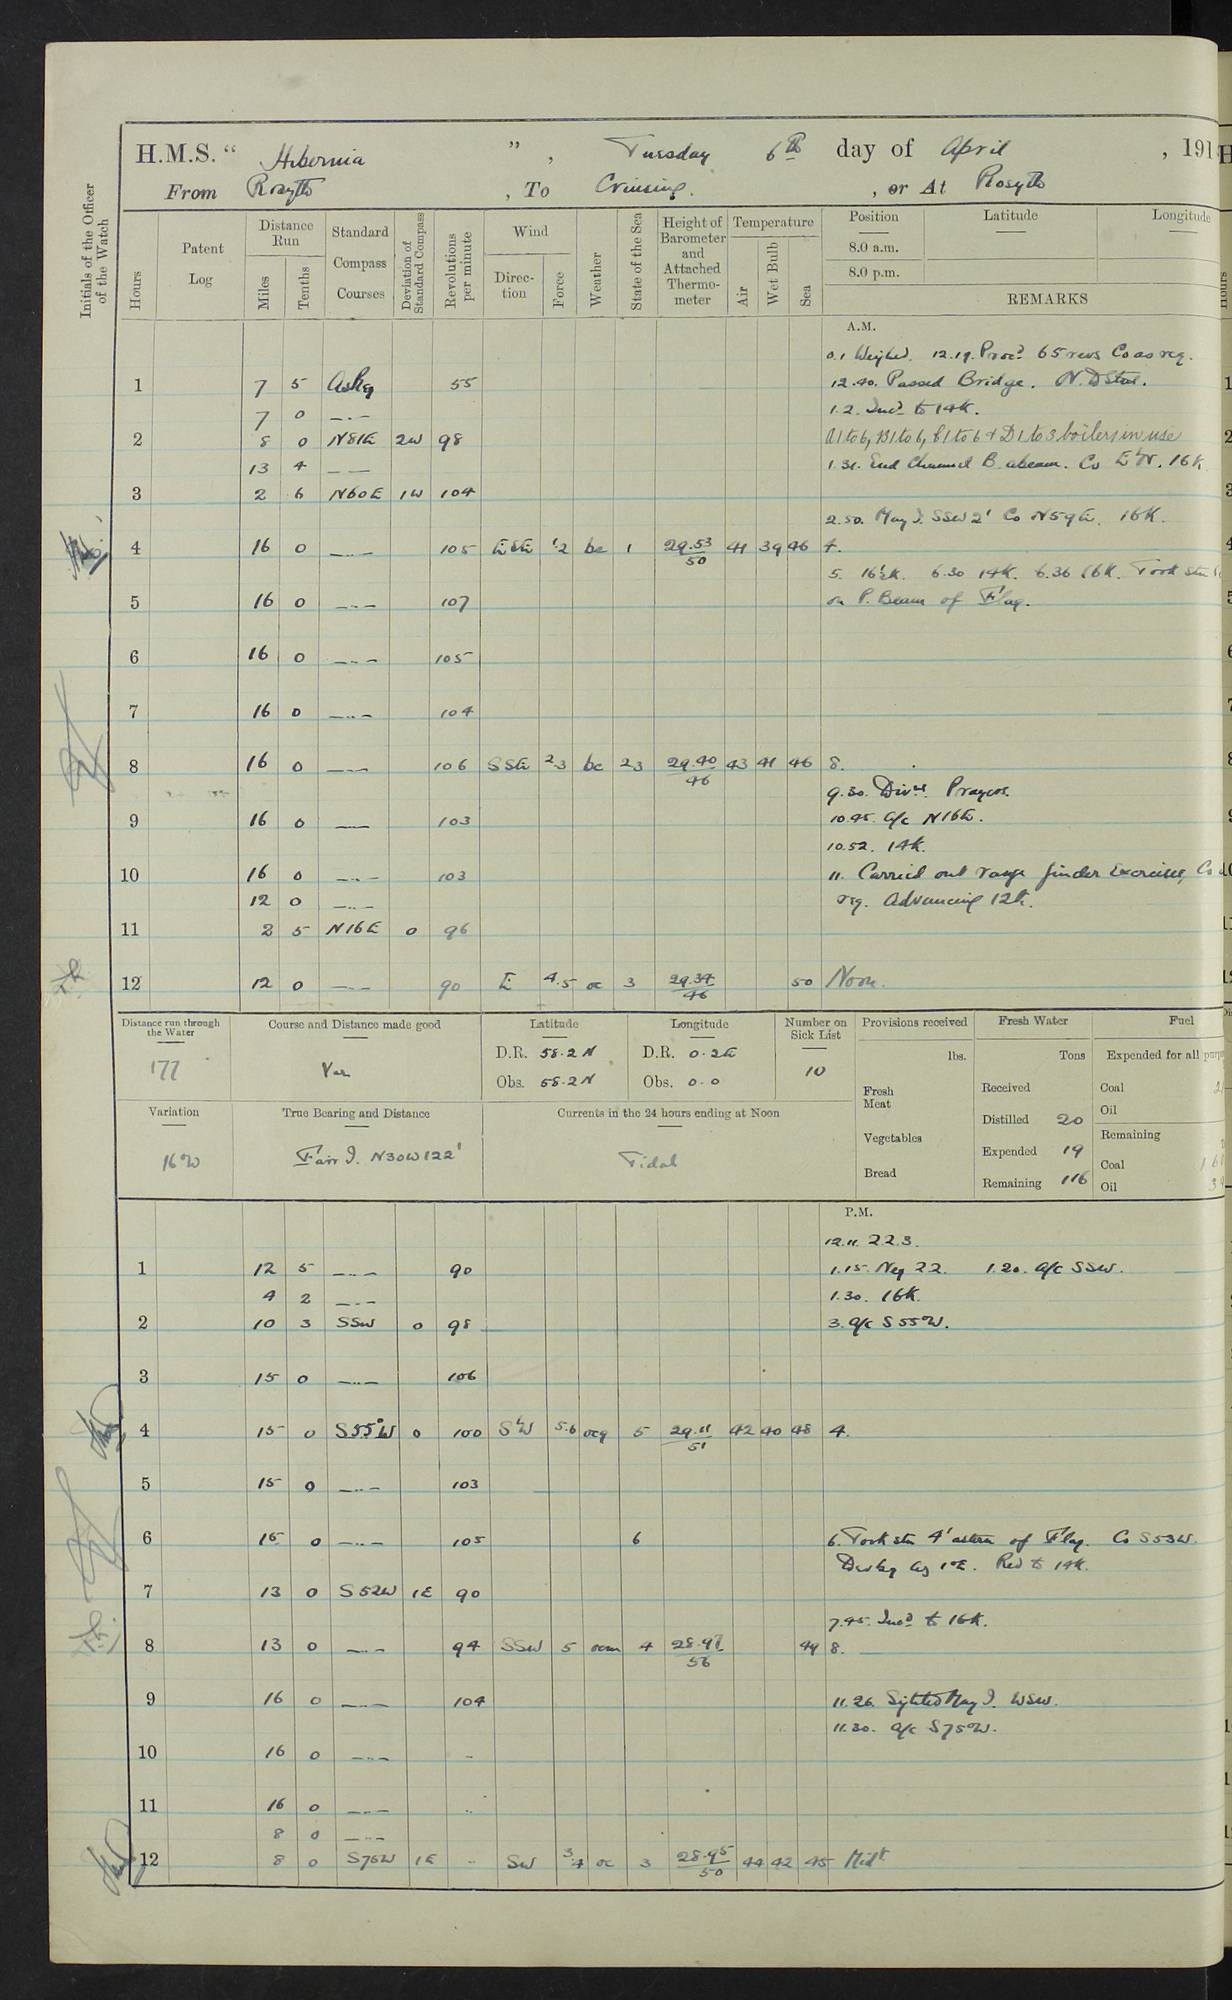 H.M.S. " Hibernia ", Tuesday 6th day of April, 191
From Rosyth, To Cruising, or At Rosyth
Initials of the Officer of the Watch
Hours Patent Log Distance Run Miles Tenths Standard Compass Courses Deviation of Standard Compass Revolutions per minute Wind Direction Force Weather State of the Sea Height of Barometer and Attached Thermometer Temperature Air Wet Bulb Sea Position Latitude Longitude
8.0 a.m.
8.0 p.m.
REMARKS
A.M.
0.1 Weighed. 12.19. Procd 65 revs Co as req.
1 7 5 As Req 55 12.40. Passed Bridge. N.D Stn.
7 0 — .. — 1.2. Incd to 14K.
2 8 0 N81E 2W 98 A1 to 6, B1 to 6, C1 to 6 & D1 to 3 boilers in use
13 4 — — 1.31. End Channel B. abeam. Co E'N. 16K
3 2 6 N60E 1W 104
2.50. May I. SSW 2' Co N59E. 16K.
4 16 0 — .. — 105 ESE 1.2 bc 1 29.53/50 41 39 46 4.
5. 16½K. 6.30 14K. 6.36 16K. Took stn
5 16 0 — .. — 107 on P. Beam of Flag.
6 16 0 — .. — 105
7 16 0 — .. — 104
8 16 0 — .. — 106 SSE 2.3 bc 23 29.40/46 43 41 46 8.
9.30. Divns. Prayers.
9 16 0 — .. — 103 10.45. a/c N16E.
10.52. 14K.
10 16 0 — .. — 103 11. Carried out range finder Exercise, Co
12 0 — .. — req. Advancing 12K.
11 2 5 N16E 0 96
12 12 0 — .. — 90 E 4.5 oc 3 29.37/46 50 Noon.
Distance run through the Water Course and Distance made good Latitude Longitude Number on Sick List Provisions received Fresh Water Fuel
177 Var D.R. 58.2 N D.R. 0.2E 10 lbs. Tons Expended for all purp
Obs. 58.2 N Obs. 0.0 Fresh Meat Received Coal
Variation True Bearing and Distance Currents in the 24 hours ending at Noon Distilled 20 Oil
16°W Fair I. N30W 122' Tidal Vegetables Expended 19 Remaining
Bread Remaining 116 Coal
Oil
P.M.
12.11. 22.3.
1 12 5 — .. — 90 1.15. Neg 22. 1.20. a/c SSW.
4 2 — .. — 1.30. 16K.
2 10 3 SSW 0 98 3. a/c S55W.
3 15 0 — .. — 106
4 15 0 S55°W 0 100 S'W 5.6 ocq 5 29.11/51 42 40 48 4.
5 15 0 — .. — 103
6 15 0 — .. — 105 6 6. Took stn 4' astern of Flag. Co S53W.
Devtg by 1°E. Red to 14K.
7 13 0 S52W 1E 90
7.45. Incd to 16K.
8 13 0 — .. — 94 SSW 5 ocm 4 28.97/56 49 8.
9 16 0 — .. — 104 11.26. Sighted May I. WSW.
11.30. a/c S75W.
10 16 0 — .. — ..
11 16 0 — .. — ..
8 0 — .. —
12 8 0 S75W 1E .. SW 3.4 oc 3 28.95/50 44 42 45 Midt